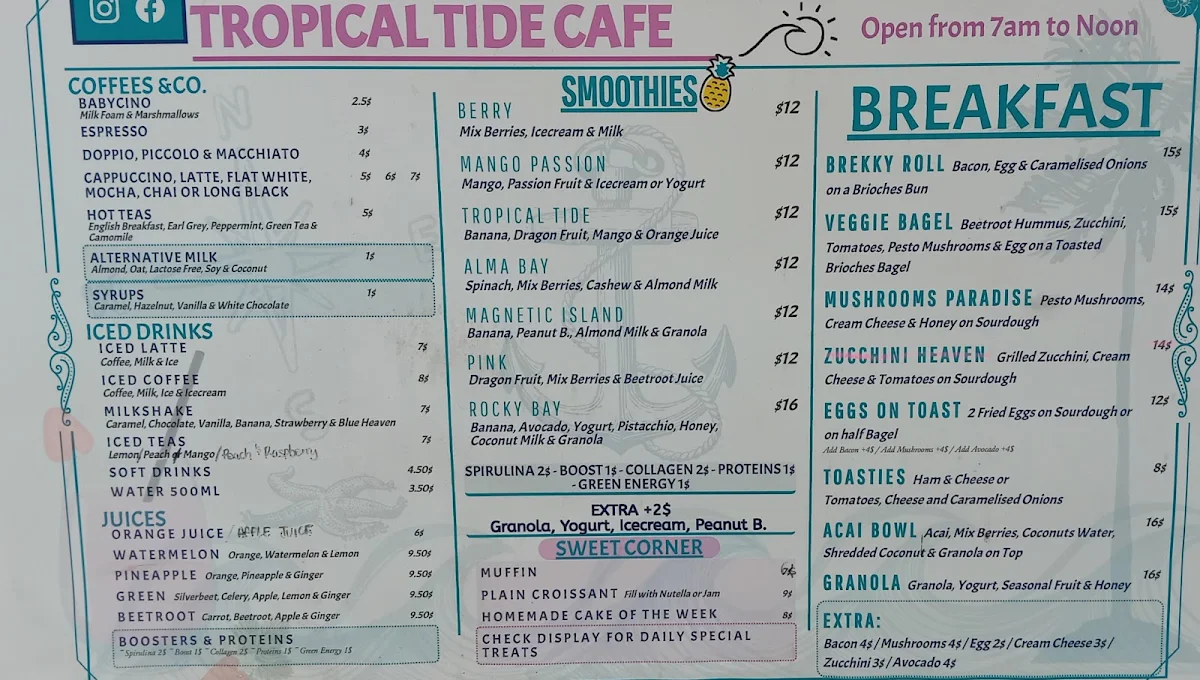 TROPICAL TIDE CAFE
Open from 7am to Noon
COFFEES &CO.
BABYCINO 2.5$
Milk Foam & Marshmallows
ESPRESSO 3$
DOPPIO, PICCOLO & MACCHIATO 4$
CAPPUCCINO, LATTE, FLAT WHITE, 5$ 6$ 7$
MOCHA, CHAI OR LONG BLACK
HOT TEAS 5$
English Breakfast, Earl Grey, Peppermint, Green Tea &
Camomile
ALTERNATIVE MILK 1$
Almond, Oat, Lactose Free, Soy & Coconut
SYRUPS 1$
Caramel, Hazelnut, Vanilla & White Chocolate
ICED DRINKS
ICED LATTE 7$
Coffee, Milk & Ice
ICED COFFEE 8$
Coffee, Milk, Ice & Icecream
MILKSHAKE 7$
Caramel, Chocolate, Vanilla, Banana, Strawberry & Blue Heaven
ICED TEAS 7$
Lemon/Peach or Mango/Peach & Raspberry
SOFT DRINKS 4.50$
WATER 500ML 3.50$
JUICES
ORANGE JUICE / APPLE JUICE 6$
WATERMELON Orange, Watermelon & Lemon 9.50$
PINEAPPLE Orange, Pineapple & Ginger 9.50$
GREEN Silverbeet, Celery, Apple, Lemon & Ginger 9.50$
BEETROOT Carrot, Beetroot, Apple & Ginger 9.50$
BOOSTERS & PROTEINS
~Spirulina 2$ ~ Boost 1$ ~ Collagen 2$ ~ Proteins 1$ ~ Green Energy 1$
SMOOTHIES
BERRY $12
Mix Berries, Icecream & Milk
MANGO PASSION $12
Mango, Passion Fruit & Icecream or Yogurt
TROPICAL TIDE $12
Banana, Dragon Fruit, Mango & Orange Juice
ALMA BAY $12
Spinach, Mix Berries, Cashew & Almond Milk
MAGNETIC ISLAND $12
Banana, Peanut B., Almond Milk & Granola
PINK $12
Dragon Fruit, Mix Berries & Beetroot Juice
ROCKY BAY $16
Banana, Avocado, Yogurt, Pistacchio, Honey,
Coconut Milk & Granola
SPIRULINA 2$ - BOOST 1$ - COLLAGEN 2$ - PROTEINS 1$
- GREEN ENERGY 1$
EXTRA +2$
Granola, Yogurt, Icecream, Peanut B.
SWEET CORNER
MUFFIN
PLAIN CROISSANT Fill with Nutella or Jam 9$
HOMEMADE CAKE OF THE WEEK 8$
CHECK DISPLAY FOR DAILY SPECIAL
TREATS
BREAKFAST
BREKKY ROLL Bacon, Egg & Caramelised Onions 15$
on a Brioches Bun
VEGGIE BAGEL Beetroot Hummus, Zucchini, 15$
Tomatoes, Pesto Mushrooms & Egg on a Toasted
Brioches Bagel
MUSHROOMS PARADISE Pesto Mushrooms, 14$
Cream Cheese & Honey on Sourdough
ZUCCHINI HEAVEN Grilled Zucchini, Cream 14$
Cheese & Tomatoes on Sourdough
EGGS ON TOAST 2 Fried Eggs on Sourdough or 12$
on half Bagel
Add Bacon +4$ / Add Mushrooms +4$ / Add Avocado +4$
TOASTIES Ham & Cheese or 8$
Tomatoes, Cheese and Caramelised Onions
ACAI BOWL Acai, Mix Berries, Coconuts Water, 16$
Shredded Coconut & Granola on Top
GRANOLA Granola, Yogurt, Seasonal Fruit & Honey 16$
EXTRA:
Bacon 4$ / Mushrooms 4$ / Egg 2$ / Cream Cheese 3$ /
Zucchini 3$ / Avocado 4$